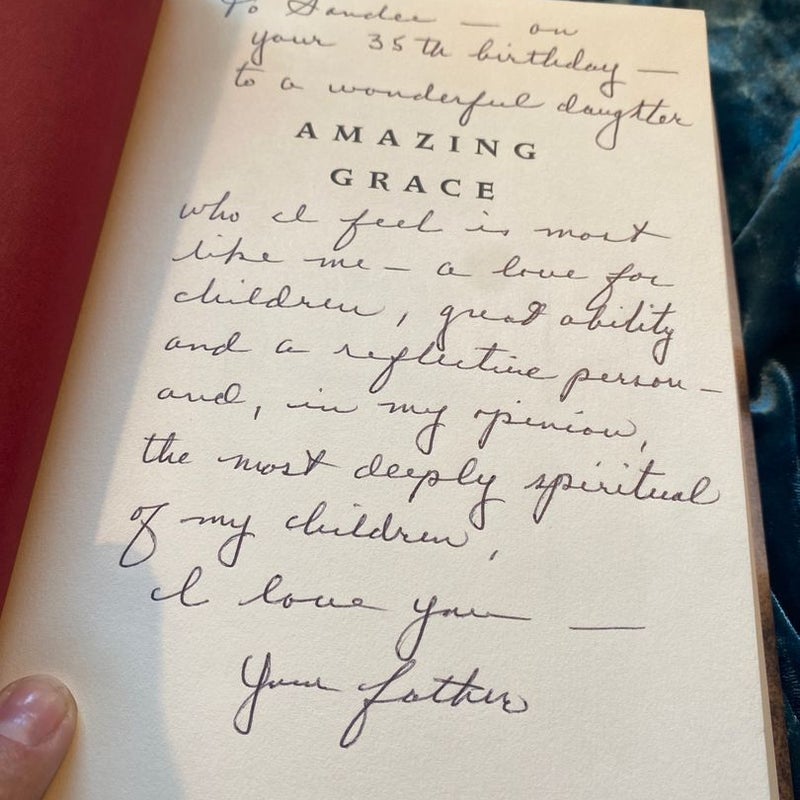 To Sandee — on
your 35th birthday —
to a wonderful daughter
AMAZING
GRACE
who I feel is most
like me — a love for
children, great ability
and a reflective person —
and, in my opinion,
the most deeply spiritual
of my children,
I love you —
Your father